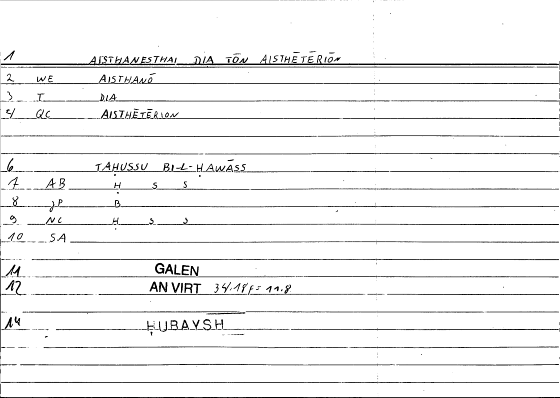 1 AISTHANESTHAI DIA TŌN AISTHĒTĒRIŌN
2 WE AISTHANŌ
3 T DIA
4 QC AISTHĒTĒRION
6 TAḤUSSU BI-L-ḤAWĀSS
7 AB Ḥ S S
8 JP B
9 NC Ḥ S S
10 SA
11 GALEN
12 AN VIRT 34.18 = 11.8
14 ḤUBAYSH